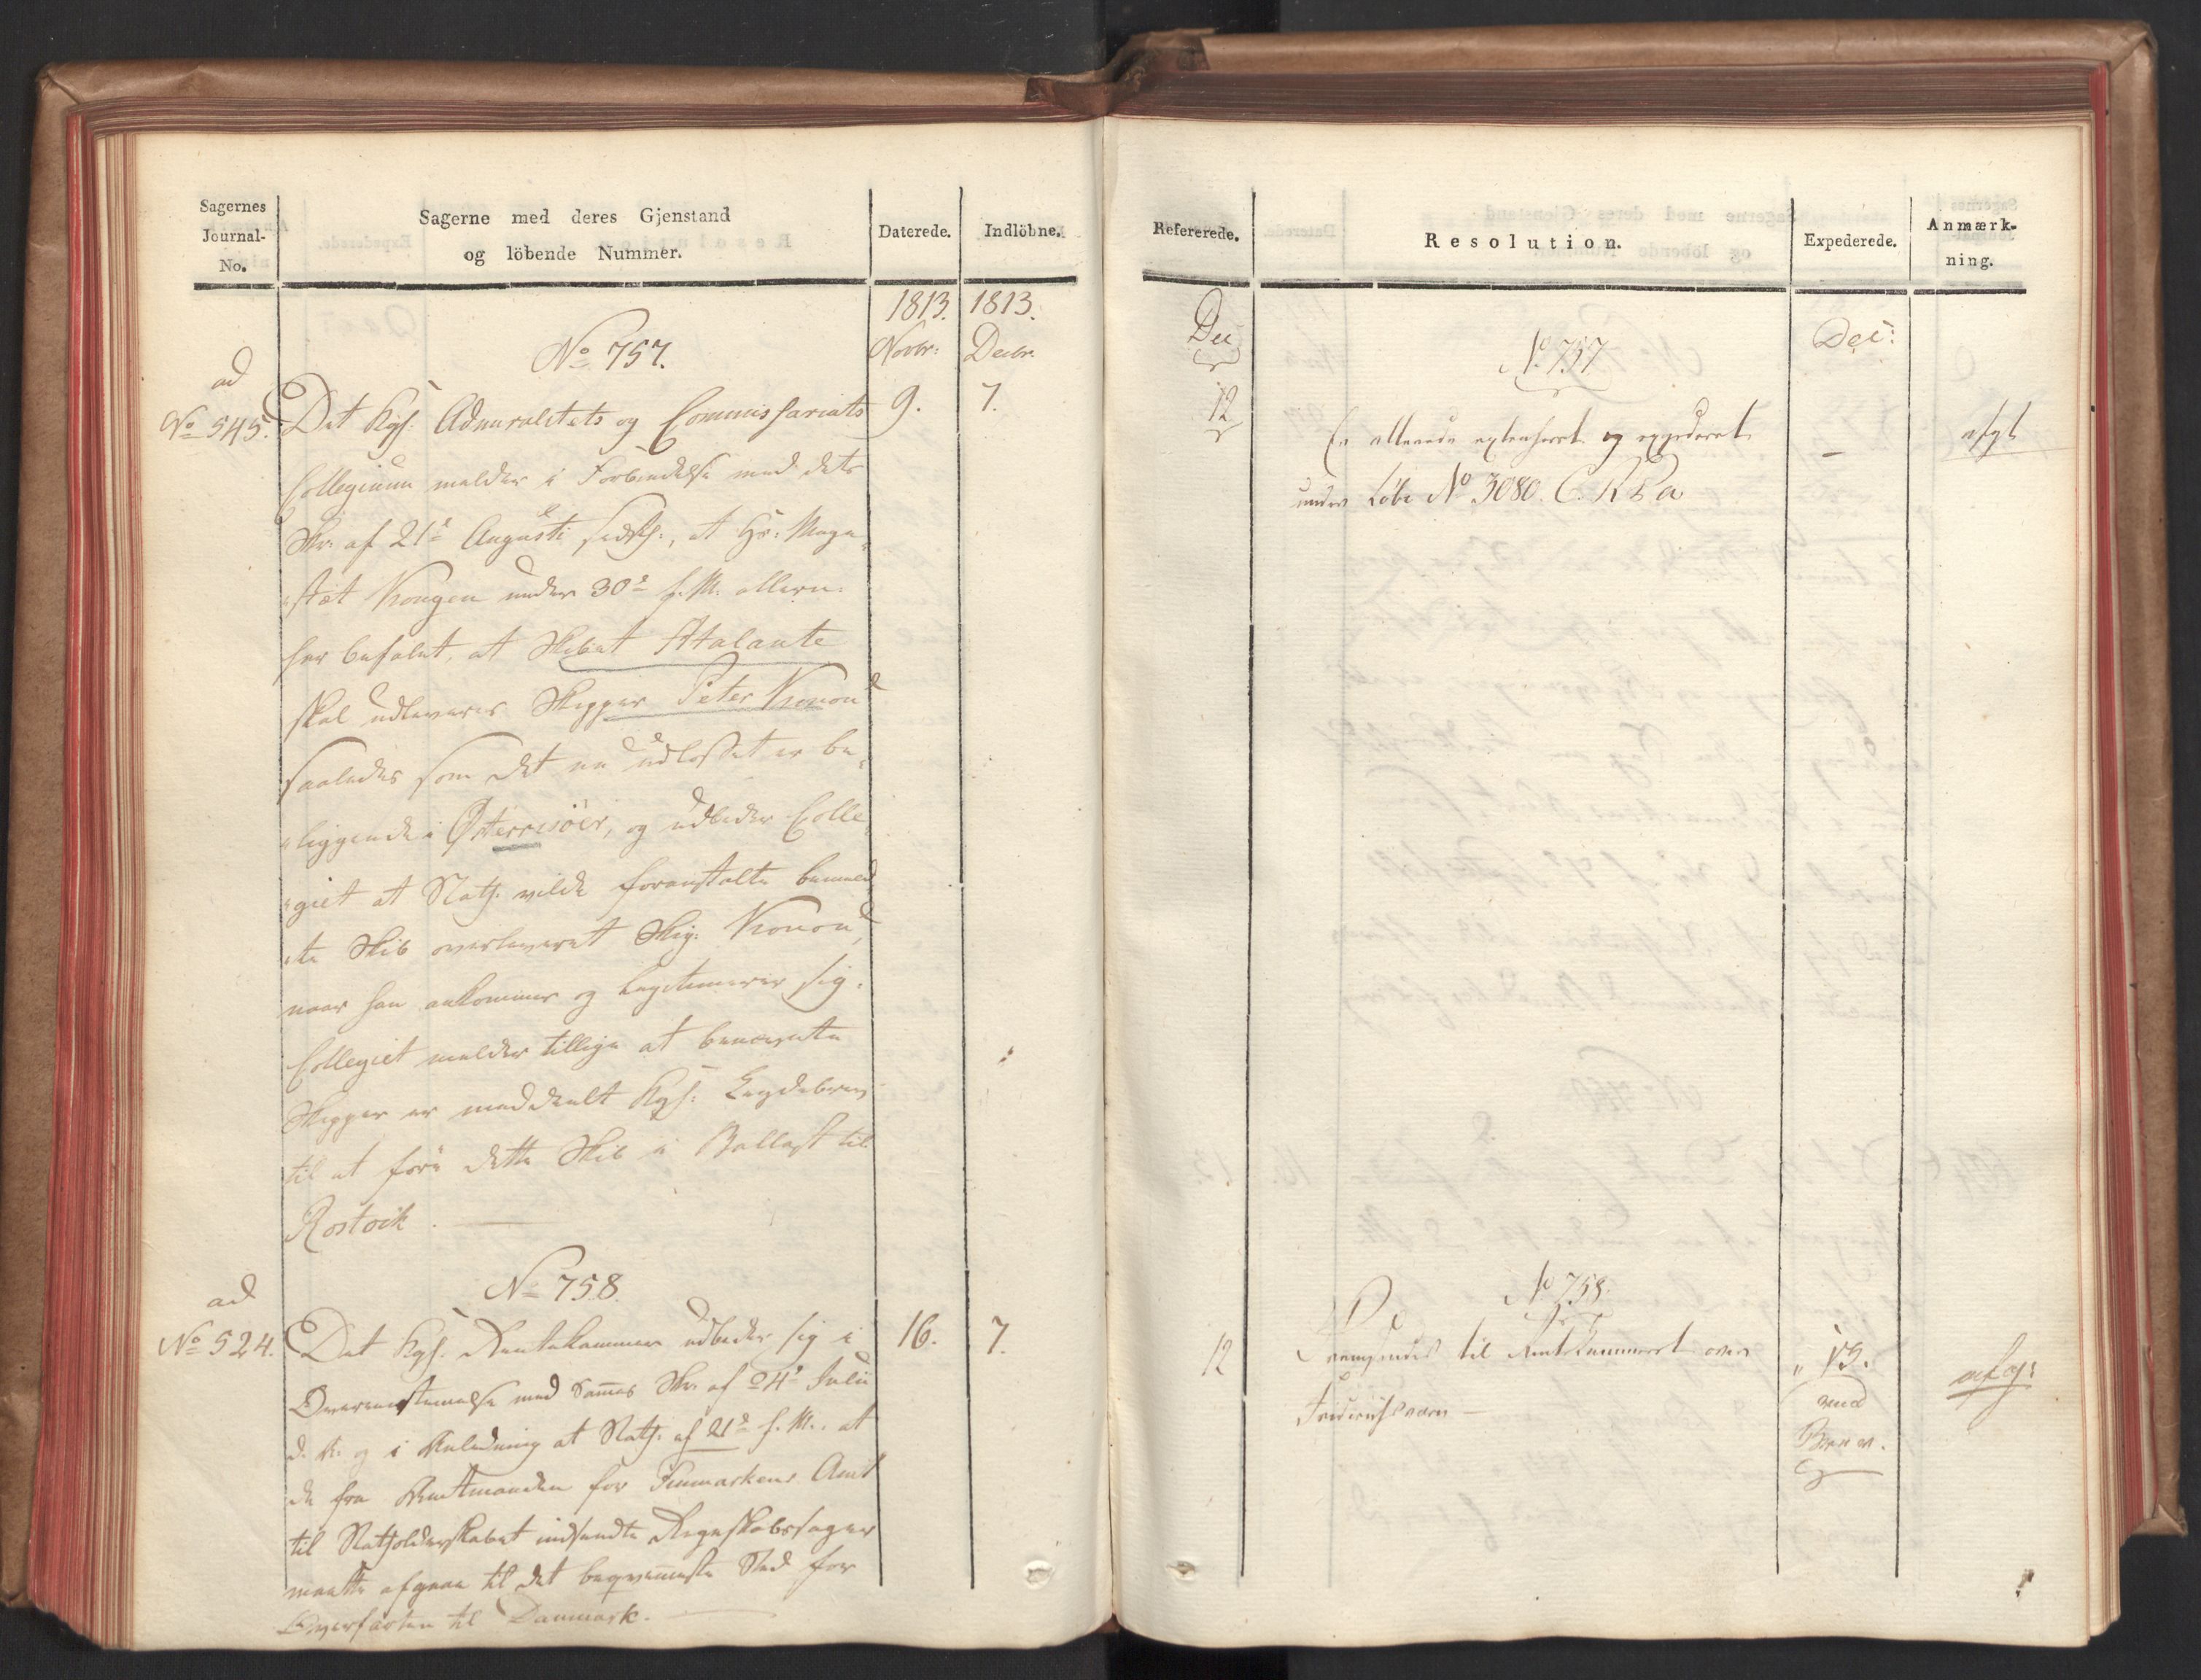 Sagernes
Journal-
No.
Sagerne med deres Gjenstand
og löbende Nummer.
Daterede.
Indlöbne.
1813.
1813.
Novbr:
Decbr.
No 757.
ad
No 545.
Det Kgl: Admiralitets og Commissariats
9.
7.
Collegium melder i Forbindelse med dets
Skr: af 21de Augusti sidstl:, at Hs: Maje-
stæt Kongen under 30te f. M. allern:
har befalet, at Skibet Atalante
skal udleveres Skipper Peter
saaledes som det nu udlosset er be-
liggende i Østerrisöer, og udbeder Colle-
giet at Stath: vilde foranstalte bemeld-
te Skib overleveret Skip:
naar han ankommer og legitimerer sig.
Collegiet melder tillige at benævnte
Skipper er meddeelt Kgl: Leydebrev
til at före dette Skib i Ballast til
Rostock.
No 758.
ad
No 524.
Det Kgl. Rentekammer udbeder sig i
16.
7.
Overeenstemmelse med Sammes Skr: af 24de Julii
d. A. og i Anledning af Stath: af 21de f. M., at
de fra Amtmanden for Finmarkens Amt
til Statholderskabet indsendte Regnskabssager
maatte afgaae til det beqvemmeste Sted for
Overfarten til Danmark.
Refererede.
Resolution.
Expederede.
Anmærk-
ning.
Dec
Dec:
No 757
12
Er allerede extraheret og expederet
afgl
under Löbe No 3080. C. K
No 758.
12
Fremsendes til Rentekammeret over
13.
afg:
Friderichsværn
med
Brev.